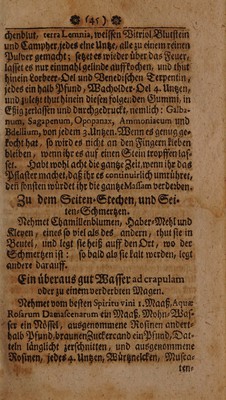 (45)
chendiut, terra Lemnia, weissen Vitriol, Blutstein
und Campher, jedes eine Untze, alle zu einem reinen
Pulver gemacht; setzt es wieder über das Feuer,
lasset es nur einmahl gelinde auffkochen, und thut
hinein Lorbeer-Oel und Venedischen Terpentin,
jedes ein halb Pfund, Wacholder-Oel 4. Untzen,
und zuletzt thut hinein diesen folgenden Gummi, in
Eßig zerlassen und durchgedruckt, nemlich: Galba-
num, Sagapenum, Opopanax, Ammoniacum und
Bdellium, von jedem 3. Untzen. Wenn es genug ge-
kocht hat, so wird es nicht an den Fingern kleben
bleiben, wenn ihr es auf einen Stein tropffen las-
set. Habt wohl acht die gantze Zeit, wenn ihr das
Pflaster machet, daß ihr es continuirlich umrühret,
den sonsten würdet ihr die gantze Massam verderben.
Zu dem Seiten-Stechen, und Sei-
ten-Schmertzen.
Nehmet Chamillenblumen, Haber-Mehl und
Kleyen, eines so viel als des andern, thut sie in
Beutel, und legt sie heiß auff den Ort, wo der
Schmertzen ist: so bald als sie kalt werden, legt
andere darauff.
Ein überaus gut Wasser ad crapulam
oder zu einem verderbten Magen.
Nehmet vom besten Spiritu vini 1. Maaß, Aquæ
Rosarum Damascenarum ein Maaß, Mohn-Was-
ser ein Nössel, ausgenommene Rosinen andert-
halb Pfund, braunen Zuckercand ein Pfund, Dat-
teln länglicht zerschnitten, und ausgenommene
Rosinen, jedes 4. Untzen, Würtznelcken, Musca-
ten-